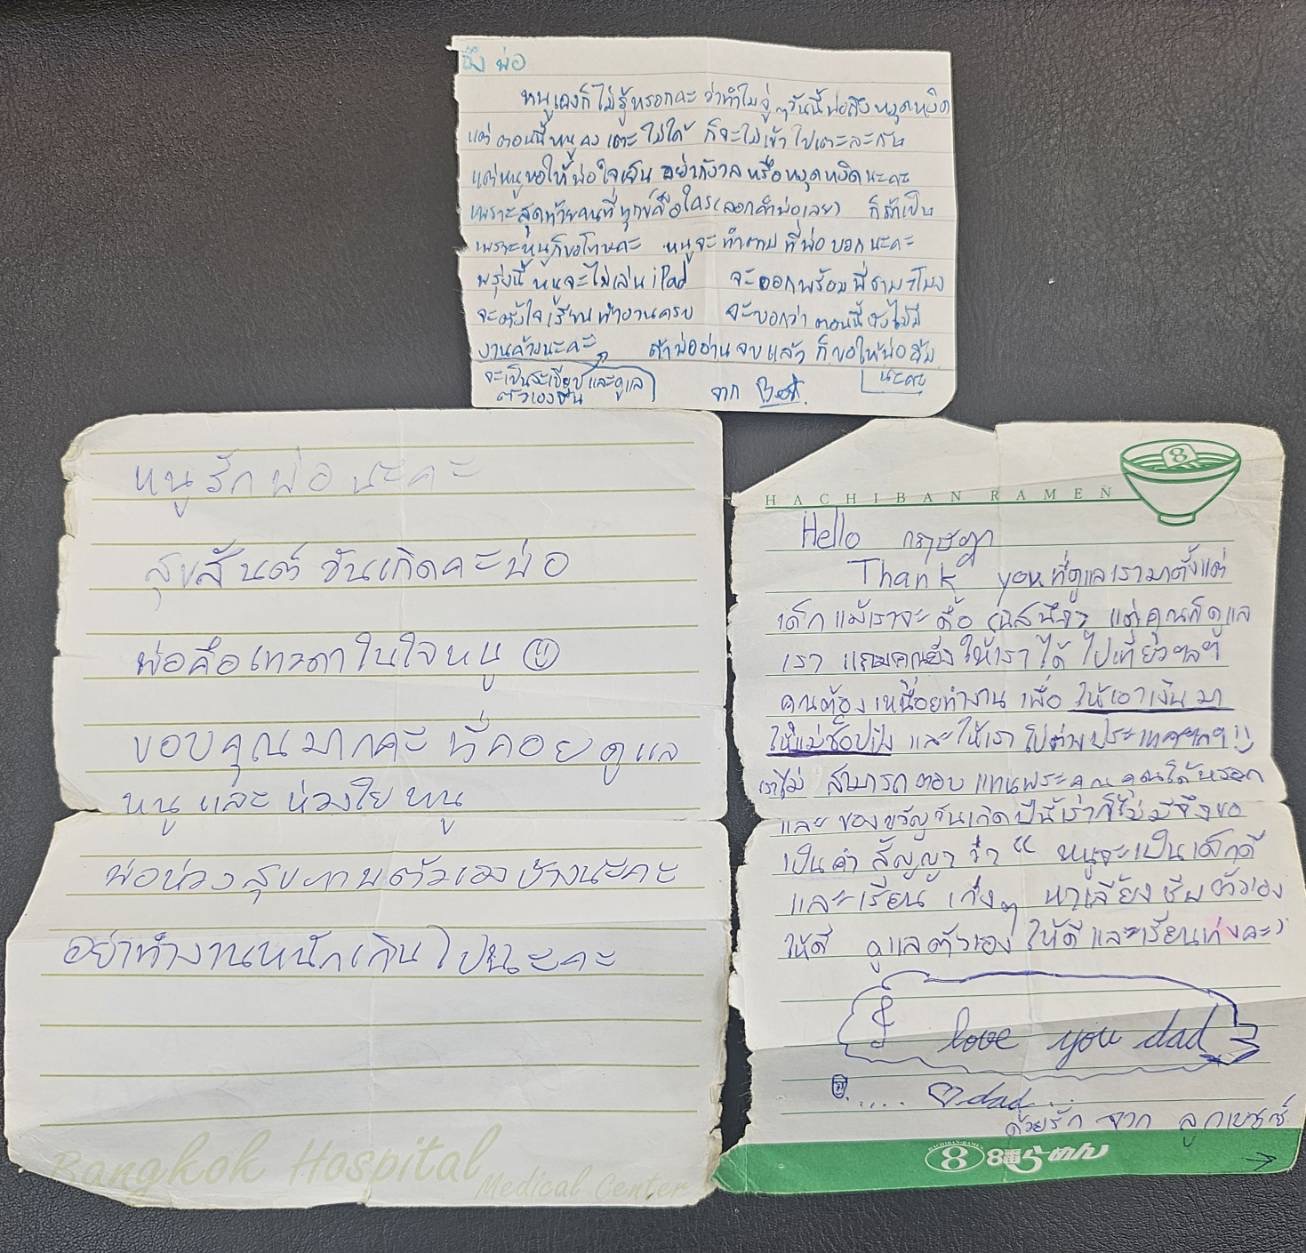 ถึง พ่อ
หนูเองก็ไม่รู้หรอกคะ ว่าทำไมจู่ๆวันนี้พ่อถึงหงุดหงิด
แต่ ตอนนี้หนูคง เตะ ไม่ได้ ก็จะไม่เข้าไปเตะละกัน
แต่หนูขอให้พ่อใจเย็น อย่ากังวล หรือหงุดหงิดนะคะ
เพราะสุดท้ายคนที่ทุกข์คือใคร(ลอกคำพ่อเลย) ก็
เพราะหนูก็ขอโทษคะ หนูจะทำตาม ที่พ่อ บอก นะคะ
พรุ่งนี้ หนูจะไม่เล่น iPad จะออกพร้อมพี่
จะตั้งใจ เรียน ทำงานครบ จะบอกว่า ตอนนี้ยังไม่มี
งานค้างนะคะ ถ้าพ่ออ่าน จบ แล้ว ก็ขอให้พ่อยิ้ม
นะคะ
จะเป็นระเบียบ และดูแล
ตัวเอง
จาก Best.
หนู รัก พ่อ นะคะ
สุขสันต์ วันเกิดคะพ่อ
พ่อคือเทวดา ในใจหนู
ขอบคุณมากคะ ที่คอย ดูแล
หนู และ ห่วงใย หนู
พ่อห่วง สุขภาพตัวเองบ้างนะคะ
อย่าทำงานหนักเกินไปนะคะ
Bangkok Hospital
Medical Center
8
HACHIBAN RAMEN
Hello
Thank you ที่ดูแลเรามาตั้งแต่
เด็ก แม้เราจะ ดื้อ แต่คุณก็ดูแล
เรา แถมคุณยังให้เราได้ ไปเที่ยว
คุณต้องเหนื่อยทำงาน เพื่อ ให้เอาเงินมา
ให้แม่ช็อปปิ้ง และให้เรา ไปต่างประเทศ
เราไม่ สามารถ ตอบ แทนพระคุณ คุณได้หรอก
และ ของขวัญวันเกิด ปีนี้เราก็ไม่มีจึงขอ
เป็นคำ สัญญา ว่า “ หนูจะเป็นเด็กดี
และเรียน เก่งๆ หาเลี้ยง ชีพ ตัวเอง
ให้ดี ดูแลตัวเอง ให้ดีและเรียนเก่งคะ”
I love you dad
dad
ด้วยรัก จาก ลูก
8 8番らーめん